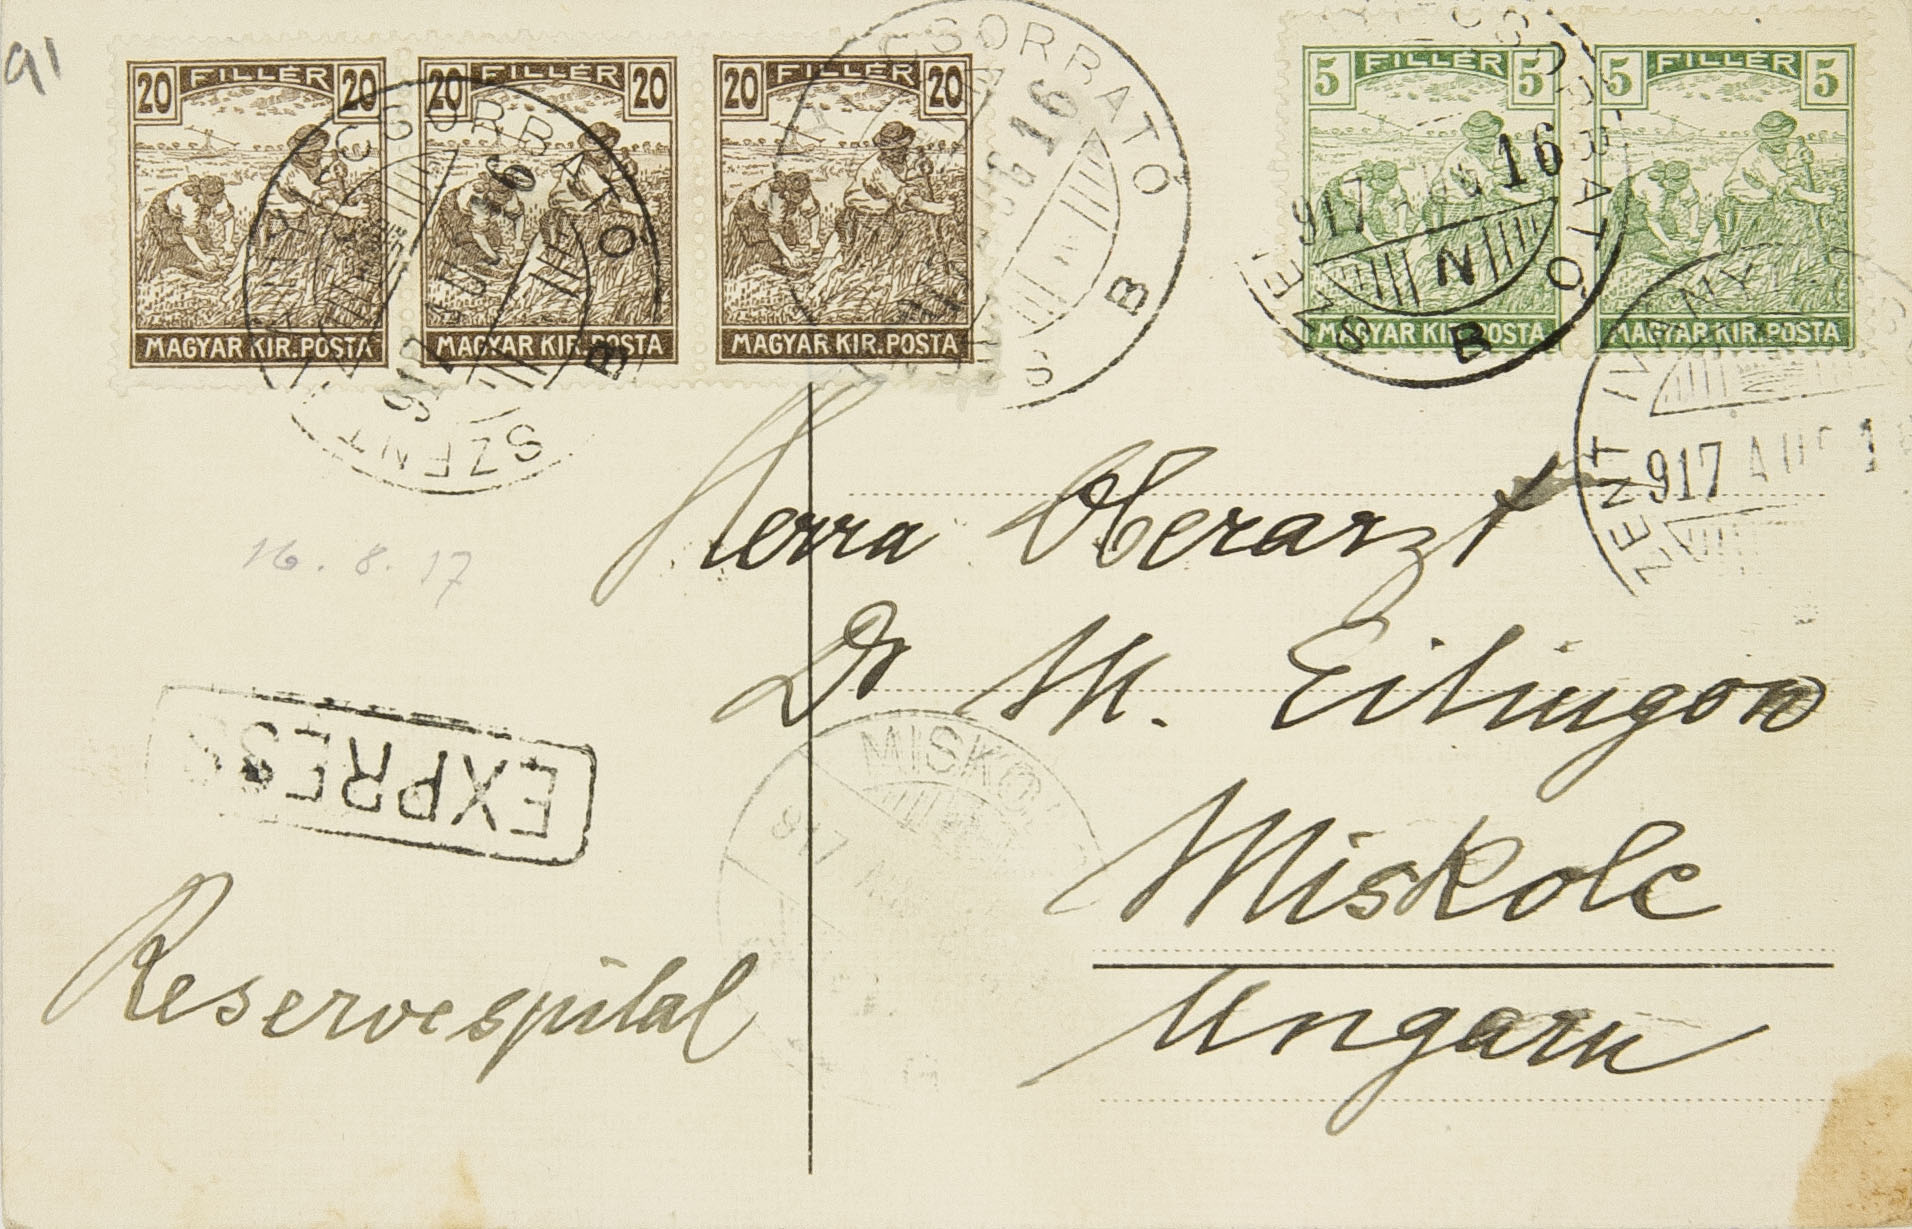 91
20 FILLÉR 20
MAGYAR KIR. POSTA
20 FILLÉR 20
MAGYAR KIR. POSTA
20 FILLÉR 20
MAGYAR KIR. POSTA
5 FILLÉR 5
MAGYAR KIR. POSTA
5 FILLÉR 5
MAGYAR KIR. POSTA
CSORBATÓ
917 AUG 16
B
SZENT
CSORBATÓ
AUG 16
B
CSORBATÓ
917 AUG 16
N
B
917 AUG 1
Herrn Oberarzt
16. 8. 17
Dr M. Eitingon
EXPRESS
MISKOL
917
Miskolc
Reservespital
Ungarn